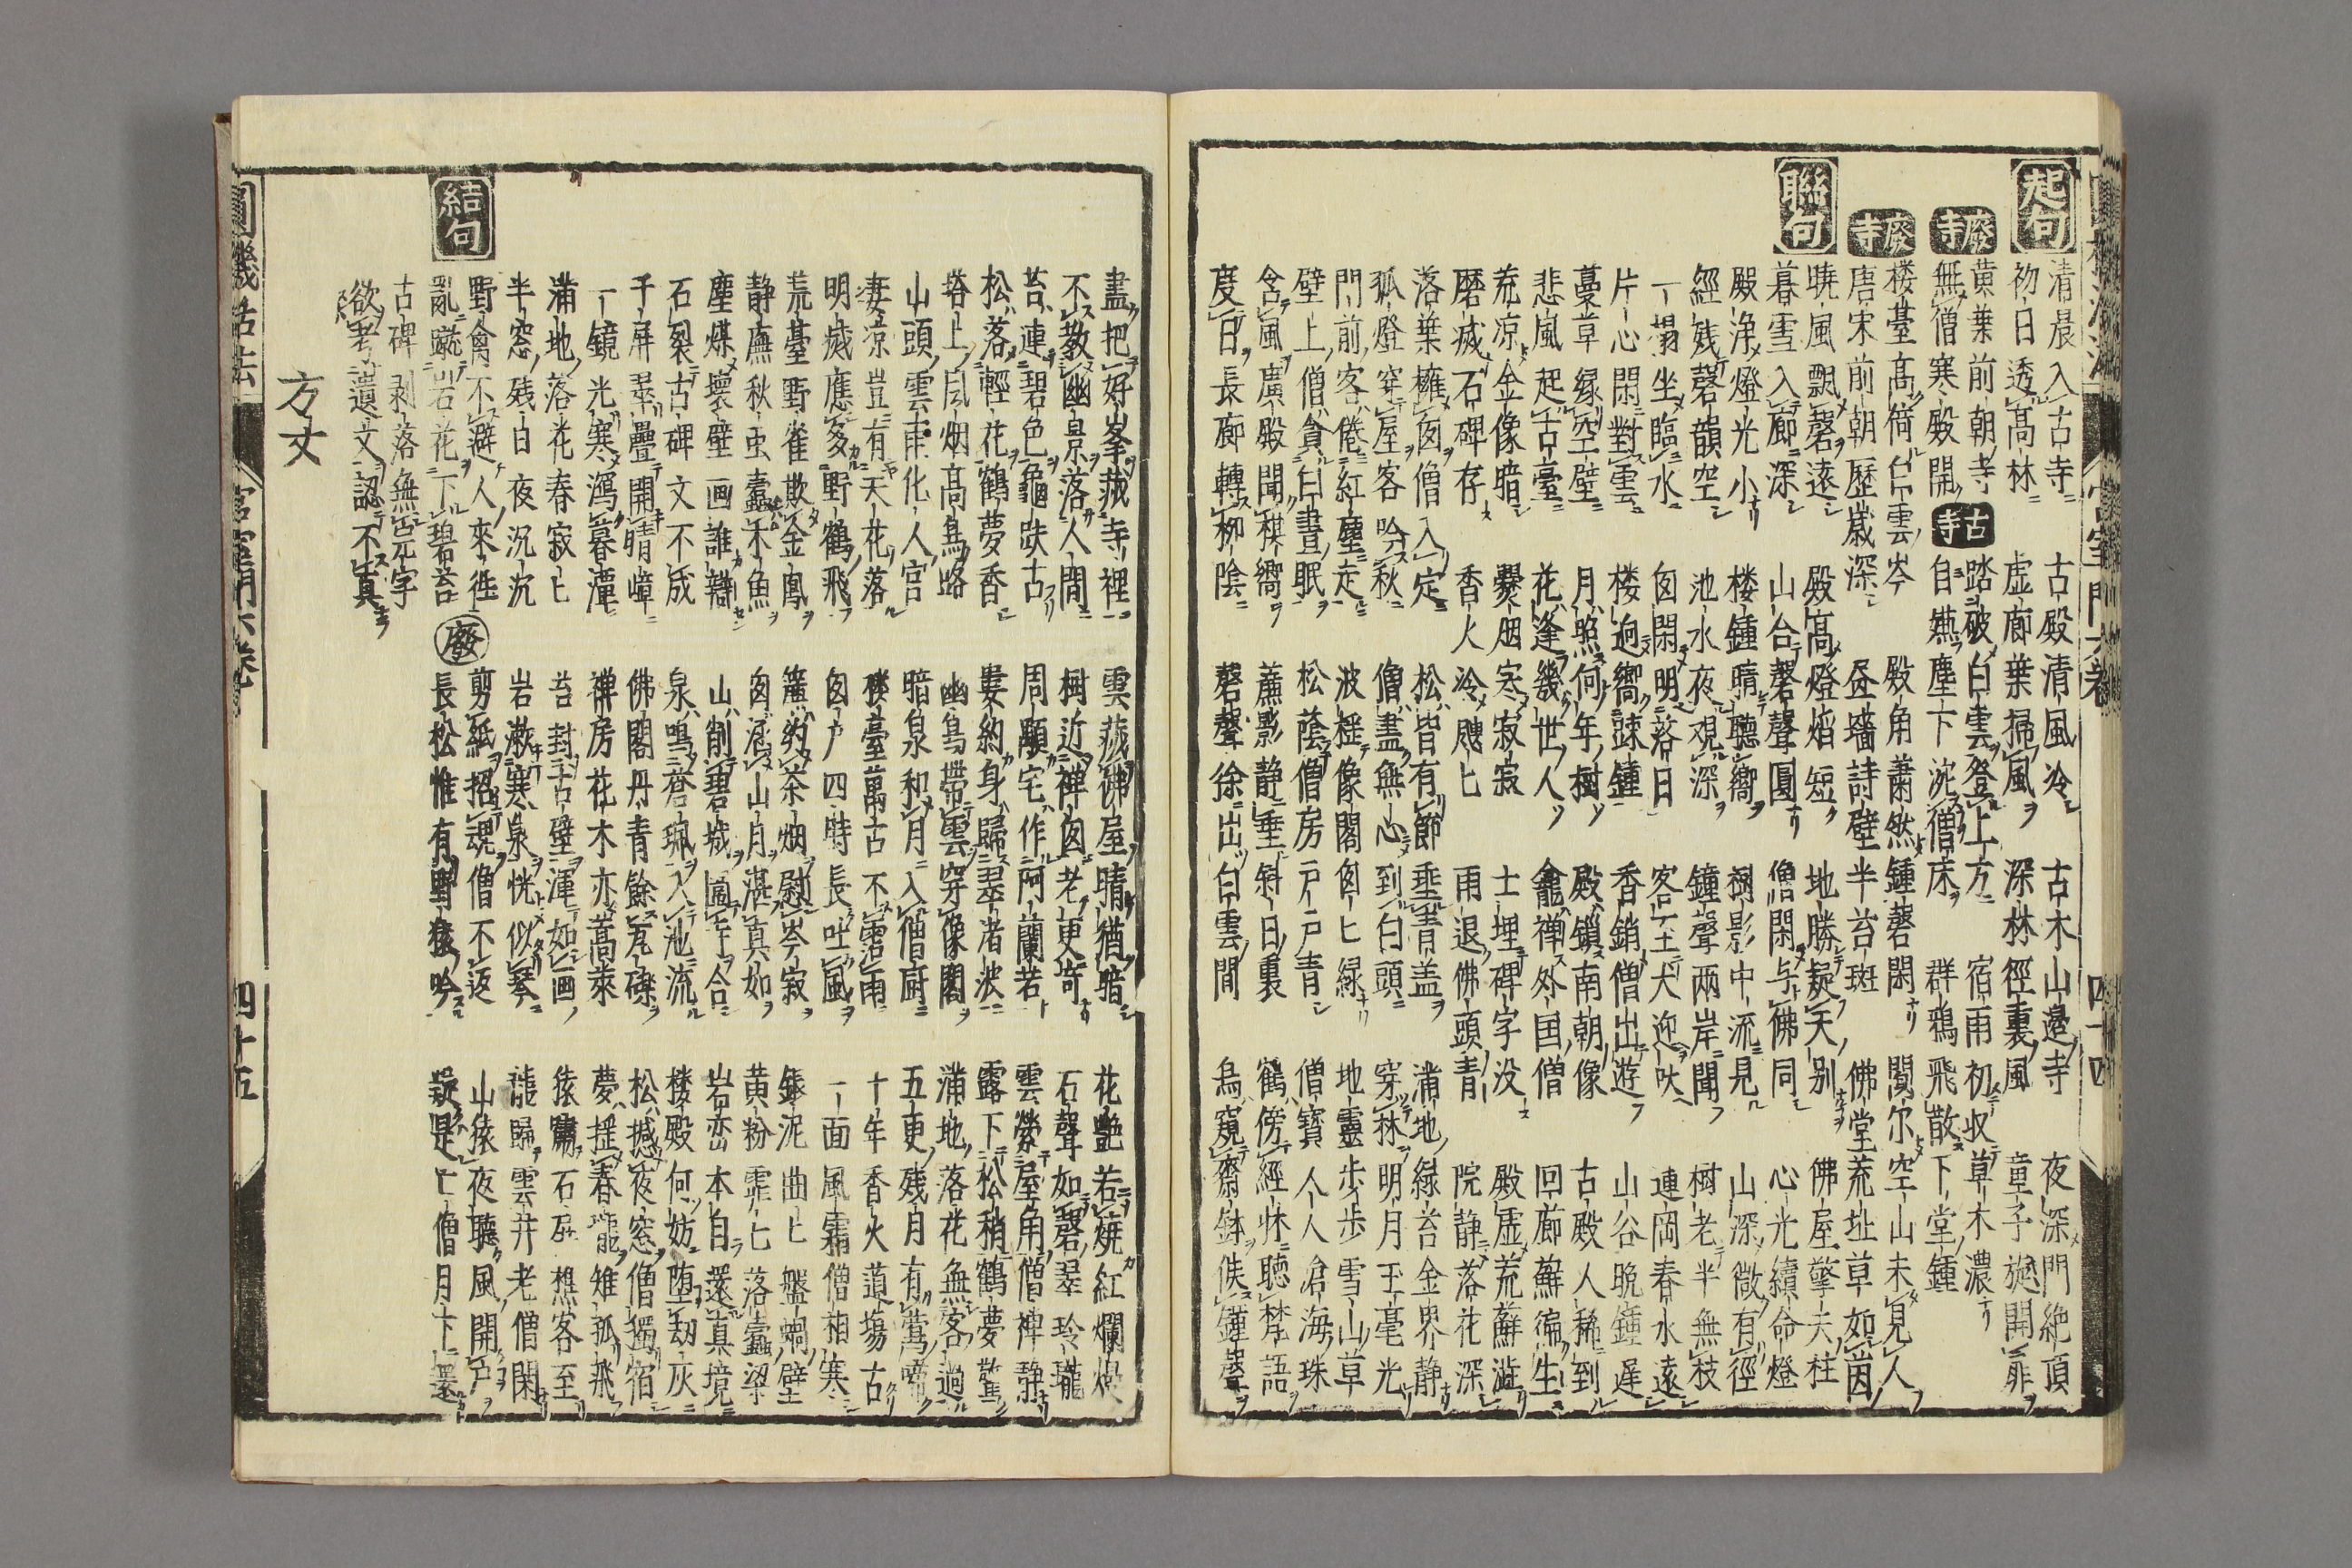 起句
清晨入古寺　古殿清風冷　古木山邊寺　夜深門絶頂
初日透高林　虚廊葉掃風　深林徑裏風　童子旋開扉
黄葉前朝寺　踏破白雲登上方　宿雨初収草木濃
廢寺
無僧寒殿開　古寺　自爇塵下沱僧床　群鴉飛散下堂鍾
楼臺高倚白雲岑　殿角蕭然鍾磬閑　闃尓空山未見人
廢寺
唐宋前朝歴歳深　壁半苔斑　佛堂荒址草如茵
聯句
曉風飄磬遠　殿高燈焰短　地勝疑天別　佛屋擎天柱
暮雪入廊深　山合磬聲圓　僧閑与佛同　心光續命燈
殿浄燈光小　楼鍾晴聽嚮　樹影中流見　山深微有徑
經残磬韻空　池水夜覌深　鐘聲兩岸聞　樹老半無枝
一榻坐臨水　囱閑明落日　客至犬迎吠　連岡春水遠
片心閑對雲　楼逈嚮疎鍾　香銷僧出遊　山谷晩鍾遅
蔓草縁空壁　月照何年樹　殿鎖南朝像　古殿人稀到
悲風起古臺　花逢幾世人　龕禅外国僧　回廊蘚徧生
荒凉金像暗　爨烟寒寂寂　土埋碑字没　殿虚荒蘚澁
磨滅石碑存　香火冷飕匕　雨退佛頭青　院静落花深
落葉擁囱僧入定　松皆有節垂青盖　滿地緑苔金界静
孤燈穿屋客吟秋　僧盡無心到白頭　穿林明月玉毫光
門前客倦紅塵走　波揺像閣囱匕緑　地靈歩歩雪山草
壁上僧貪白晝眠　松蔭僧房戸戸青　僧寳人人滄海珠
含風廣殿聞棋嚮　蔗影静垂斜日裏　鶴傍經休聽梵語
度日長廊轉柳陰　磬聲徐出白雲間　烏窺齋鉢候鍾聲
圓機活法　宮室門六卷　四十四
盡把好峯藏寺裡　雲藏佛屋晴猶暗　花艷若燒紅爛熳
不教幽景落人間　樹近禅囱老更竒　石聲如磬翠玲瓏
苔連碧色龜趺古　周顒宅作阿蘭若　雲縈屋角僧禅静
松落輕花鶴夢香　婁約身歸翠渚波　露下松稍鶴夢驚
塔上風烟高鳥路　幽鳥帶雲穿像閣　滿地落花無客過
山頭雲雨化人宮　暗泉和月入僧厨　五更残月有鴬啼
凄凉豈有天花落　楼臺萬古不霑雨　十年香火道塲古
明滅應多野鶴飛　囱户四時長吐風　一面風霜僧相寒
荒臺野雀欺金鳳　簷約茶烟慰岑寂　銀泥曲匕盤蝸壁
静廡秋虫蠹禾魚　囱涵山月湛真如　黄粉霏匕落蠹梁
塵煤壞壁画誰辯　山削碧城圖合　岩峦本自還真境
石裂古碑文不成　泉鳴蒼珮入池流　楼殿何妨堕刧灰
千屏翠疊開晴嶂　佛閣丹青餘瓦礫　松撼夜窓僧獨宿
一鏡光寒瀉暮潭　禅房花木亦蒿萊　夢揺春𥨊雉孤飛
滿地落花春寂匕　苔封古壁渾如画　猿嘯石房樵客至
半窓残日夜沉沉　岩漱寒泉恍似琴　龍歸雲井老僧閑
野禽不避人來往　剪紙招魂僧不返　山猿夜聽風開戸
結句
亂蹴岩花下碧苔　廢　長松惟有野猿吟　疑是亡僧月下還
古碑剥落無完字
欲考遺文認不真
方丈
圓機活法　宮室門六卷　四十五